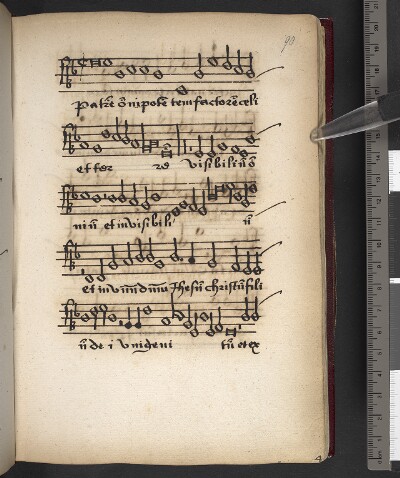 90
patrē ōnipotē tem factorē celi
et ter re visibiliū ō
niū et invisibili ū
et in unū dnū Jhesū christū fili
ū de i unigeni tū et ex